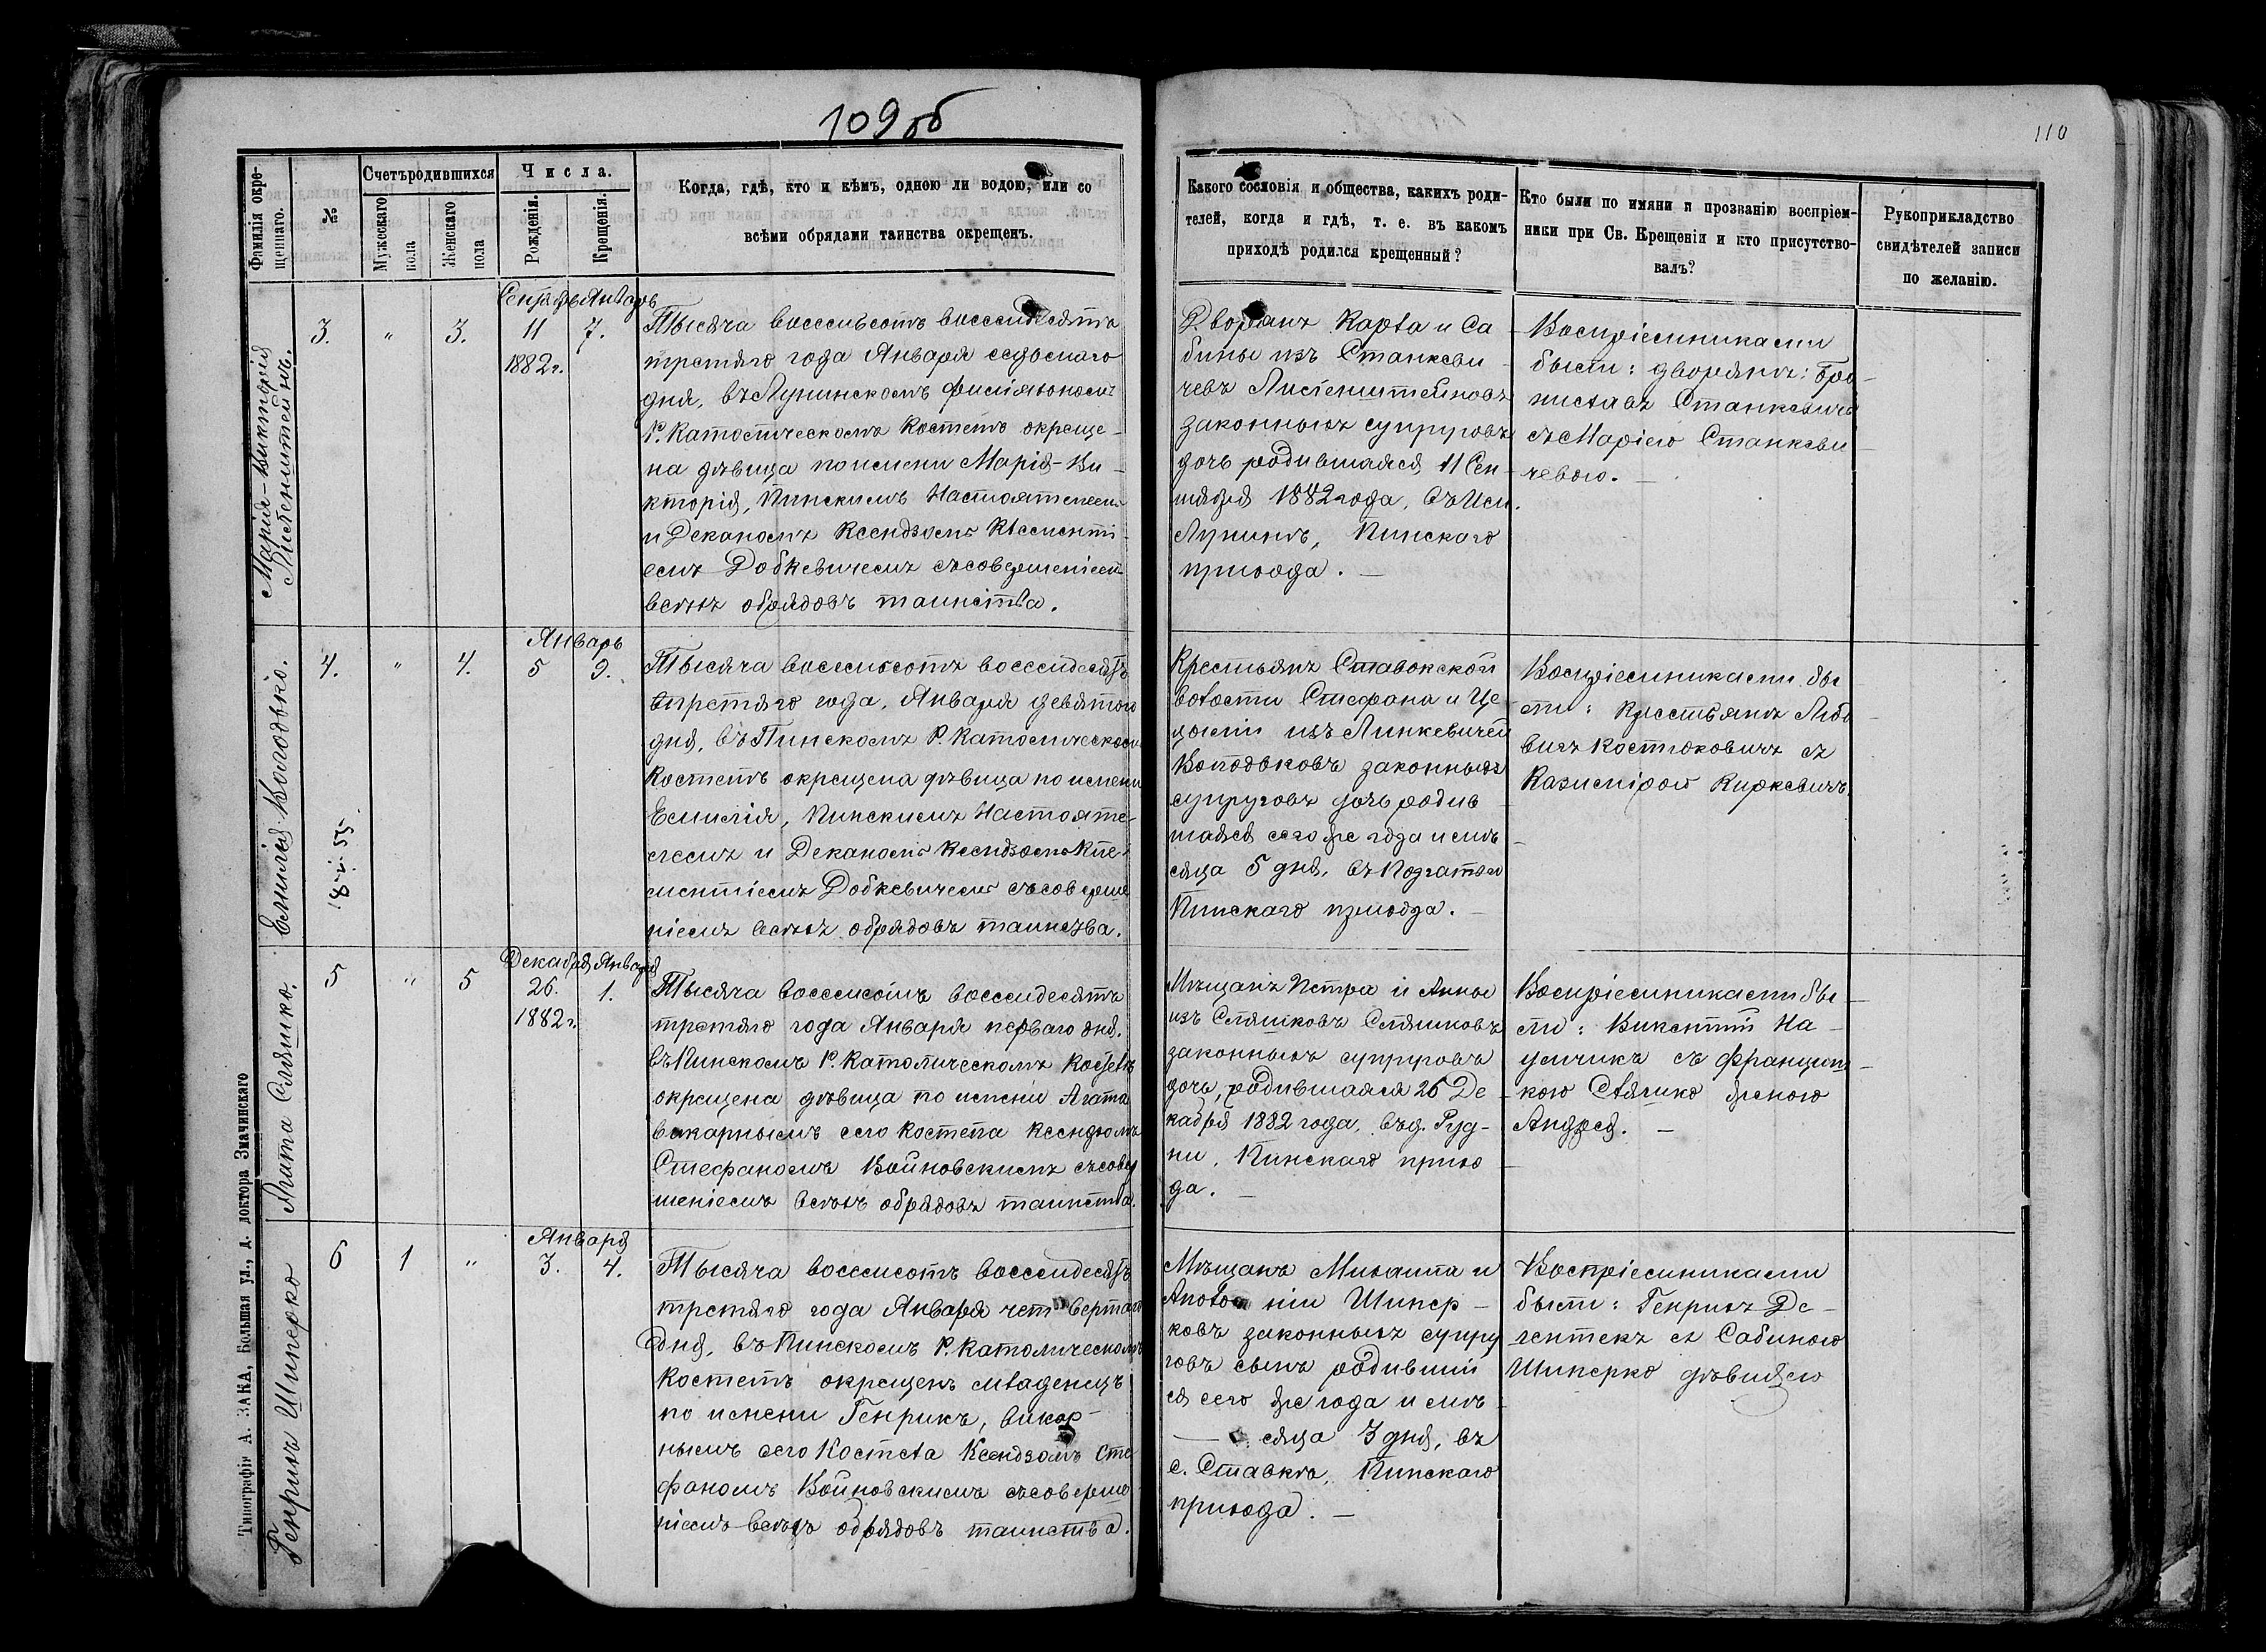 109об
110
Фамилія окрещеннаго.
№
Счетъ родившихся
Мужескаго пола
Женскаго пола
Числа.
Рожденія.
Крещенія.
Когда, гдѣ, кто и кѣмъ, одною ли водою, или со
всѣми обрядами таинства окрещенъ.
Какого сословія и общества, какихъ роди-
телей, когда и гдѣ, т. е. въ какомъ
приходѣ родился крещенный?
Кто были по имяни и прозванію воспріем-
ники при Св. Крещеніи и кто присутство-
валъ?
Рукоприкладство
свидѣтелей записи
по желанію.
Марія-Викторія
Лисченштейнъ.
3.
"
3.
Сентябрь Январь
11 7.
1882 г.
Тысяча восемьсотъ восемьдесятъ
третяго года Января седьмаго
дня, въ Лунинскомъ филіяльномъ
Р. Католическомъ костелѣ окреще-
на дѣвица по имени Марія-Ви-
кторія, Пинскимъ Настоятелемъ
и Деканомъ Ксендзомъ Клементі-
емъ Добкевичемъ съ совершеніемъ
всѣхъ обрядовъ таинства.
Дворянъ Карла и Са-
бины изъ Станкеви-
чевъ
законныхъ супруговъ
дочь родившаяся 11 Сен-
тября 1882 года, въ Им.
Лунинѣ, Пинскаго
прихода. —
Воспріемниками
были: дворянъ: Бро-
ниславъ Станкевичъ
съ Маріею Станкеви-
чевою. —
Емилія Колодько.
4.
"
4.
Январь
5 9.
Тысяча восемьсотъ восемьдесятъ
третяго года, Января девятого
дня, въ Пинскомъ Р. Католическомъ
Костелѣ окрещена дѣвица по имени
Емилія, Пинскимъ Настояте-
лемъ и Деканомъ Ксендзомъ Кле-
ментіемъ Добкевичемъ съ соверше-
ніемъ всѣхъ обрядовъ таинства.
Крестьянъ Ставокской
волости Стефана и Це-
циліи изъ Линкевичей
Колодьковъ законныхъ
супруговъ дочь родив-
шаяся сего же года и мѣ-
сяца 5 дня, въ
Пинскаго прихода. —
Воспріемниками бы-
ли: крестьянъ Людо-
викъ Костюковичъ съ
Казимірой Киркевичъ.
Агата Сляшко.
5
"
5
Декабря Января
26. 1.
1882 г.
Тысяча восемьсотъ восемьдесятъ
третяго года Января перваго дня.
въ Пинскомъ Р. Католическомъ Костелѣ
окрещена дѣвица по имени Агата
викарнымъ сего Костела Ксендзомъ
Стефаномъ Войновскимъ съ совер
шеніемъ всѣхъ обрядовъ таинства.
Мѣщанъ Петра и Анны
изъ Сляшковъ Сляшковъ
законныхъ супруговъ
дочь, родившаяся 26 Де-
кабря 1882 года, въ д. Руд-
ни, Пинскаго прихо-
да. —
Воспріемниками бы-
ли: Викентій На-
умчикъ съ Францишкою
Сляшко женою
Андрея. —
Генрихъ Шиперко
6
1
"
Января
3. 4.
Тысяча восемьсотъ восемьдесятъ
третяго года Января четвертаго
дня, въ Пинскомъ Р. Католическомъ
Костелѣ окрещенъ младенецъ
по имени Генрикъ, викар-
нымъ сего Костела Ксендзомъ Сте
фаномъ Войновскимъ съ соверше-
ніемъ всѣхъ обрядовъ таинства.
Мѣщанъ Михаила и
Аполоніи Шипер-
ковъ законныхъ супру
говъ сынъ родившій
ся сего же года и мѣ-
сяца 3 дня, въ
с. Ставкѣ, Пинскаго
прихода. —
Воспріемниками
были: Генрихъ Де-
с Сабиною
Шиперко дѣвицею
Типографія А. ЗАКА, Большая ул., д. доктора Змачинскаго